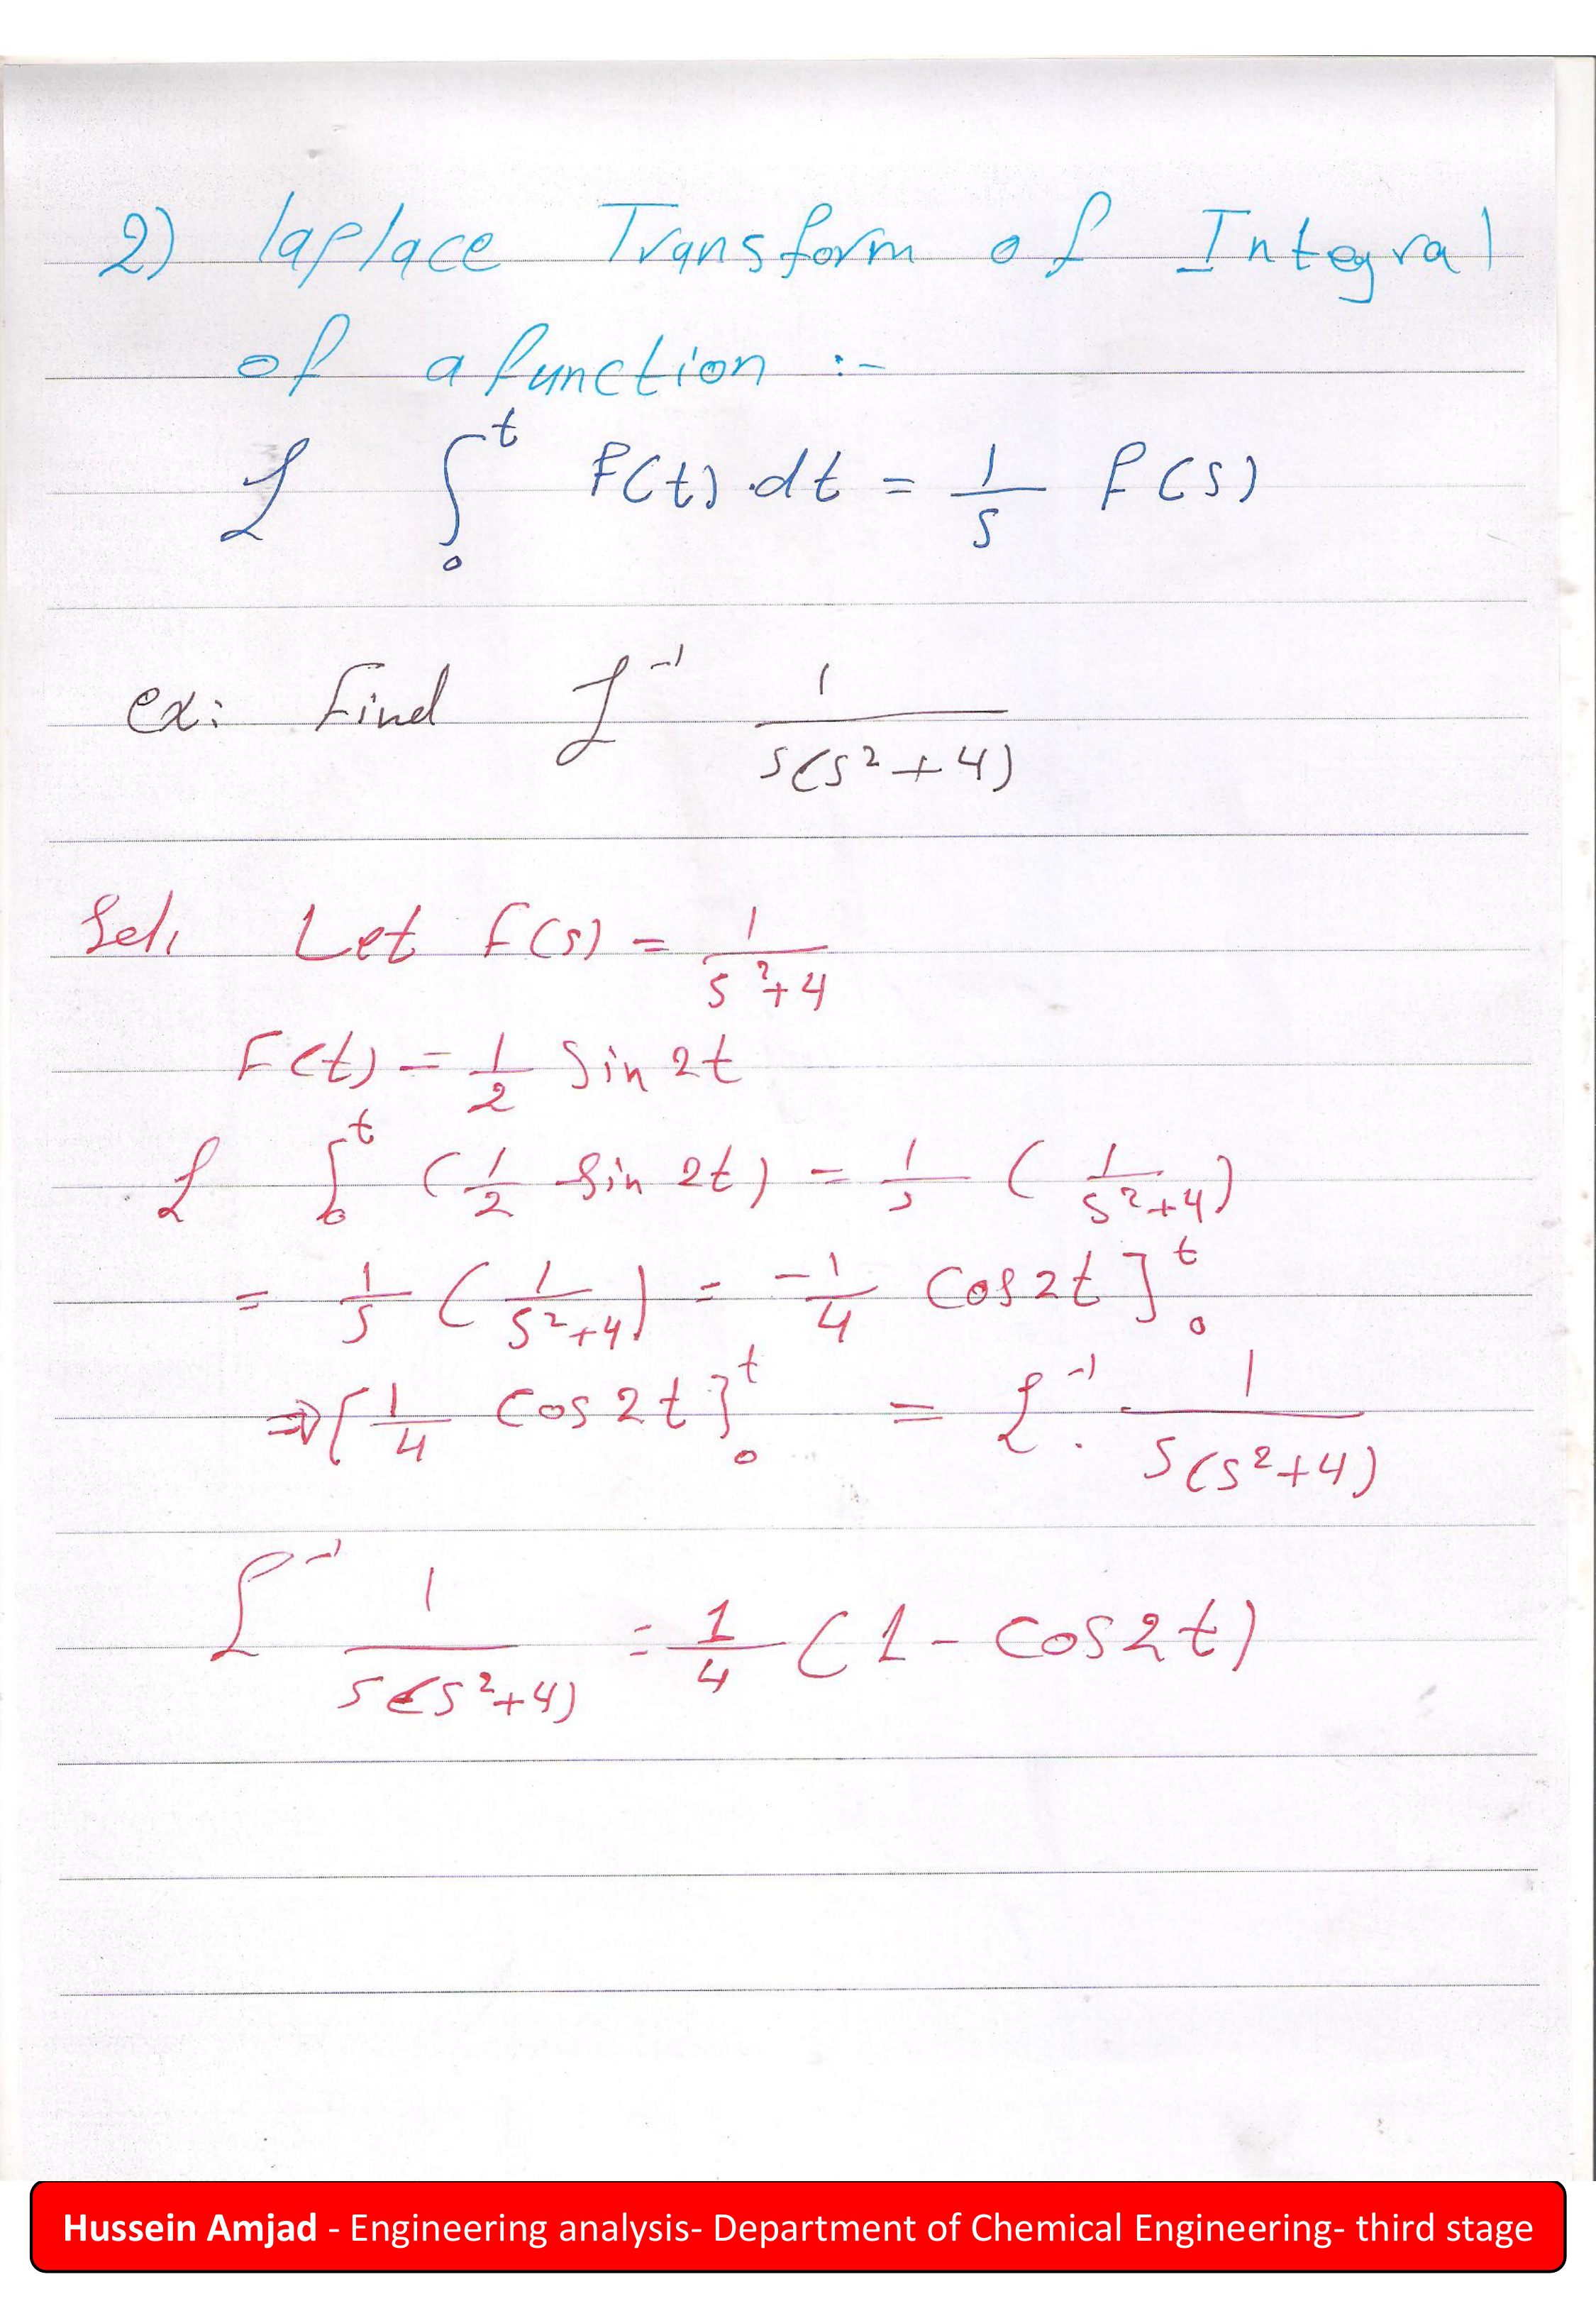 2) laplace Transform of Integral
of a function :-
ℒ ∫₀ᵗ F(t).dt = 1/s f(s)
ex: Find ℒ⁻¹ 1/(s(s²+4))
Sol, Let f(s) = 1/(s²+4)
F(t) = 1/2 Sin 2t
ℒ ∫₀ᵗ (1/2 Sin 2t) = 1/s (1/(s²+4))
= 1/s (1/(s²+4)) = -1/4 Cos 2t]₀ᵗ
⇒[1/4 Cos 2t]₀ᵗ = ℒ⁻¹. 1/(s(s²+4))
ℒ⁻¹ 1/(s(s²+4)) = 1/4 (1 - Cos 2t)
Hussein Amjad - Engineering analysis- Department of Chemical Engineering- third stage